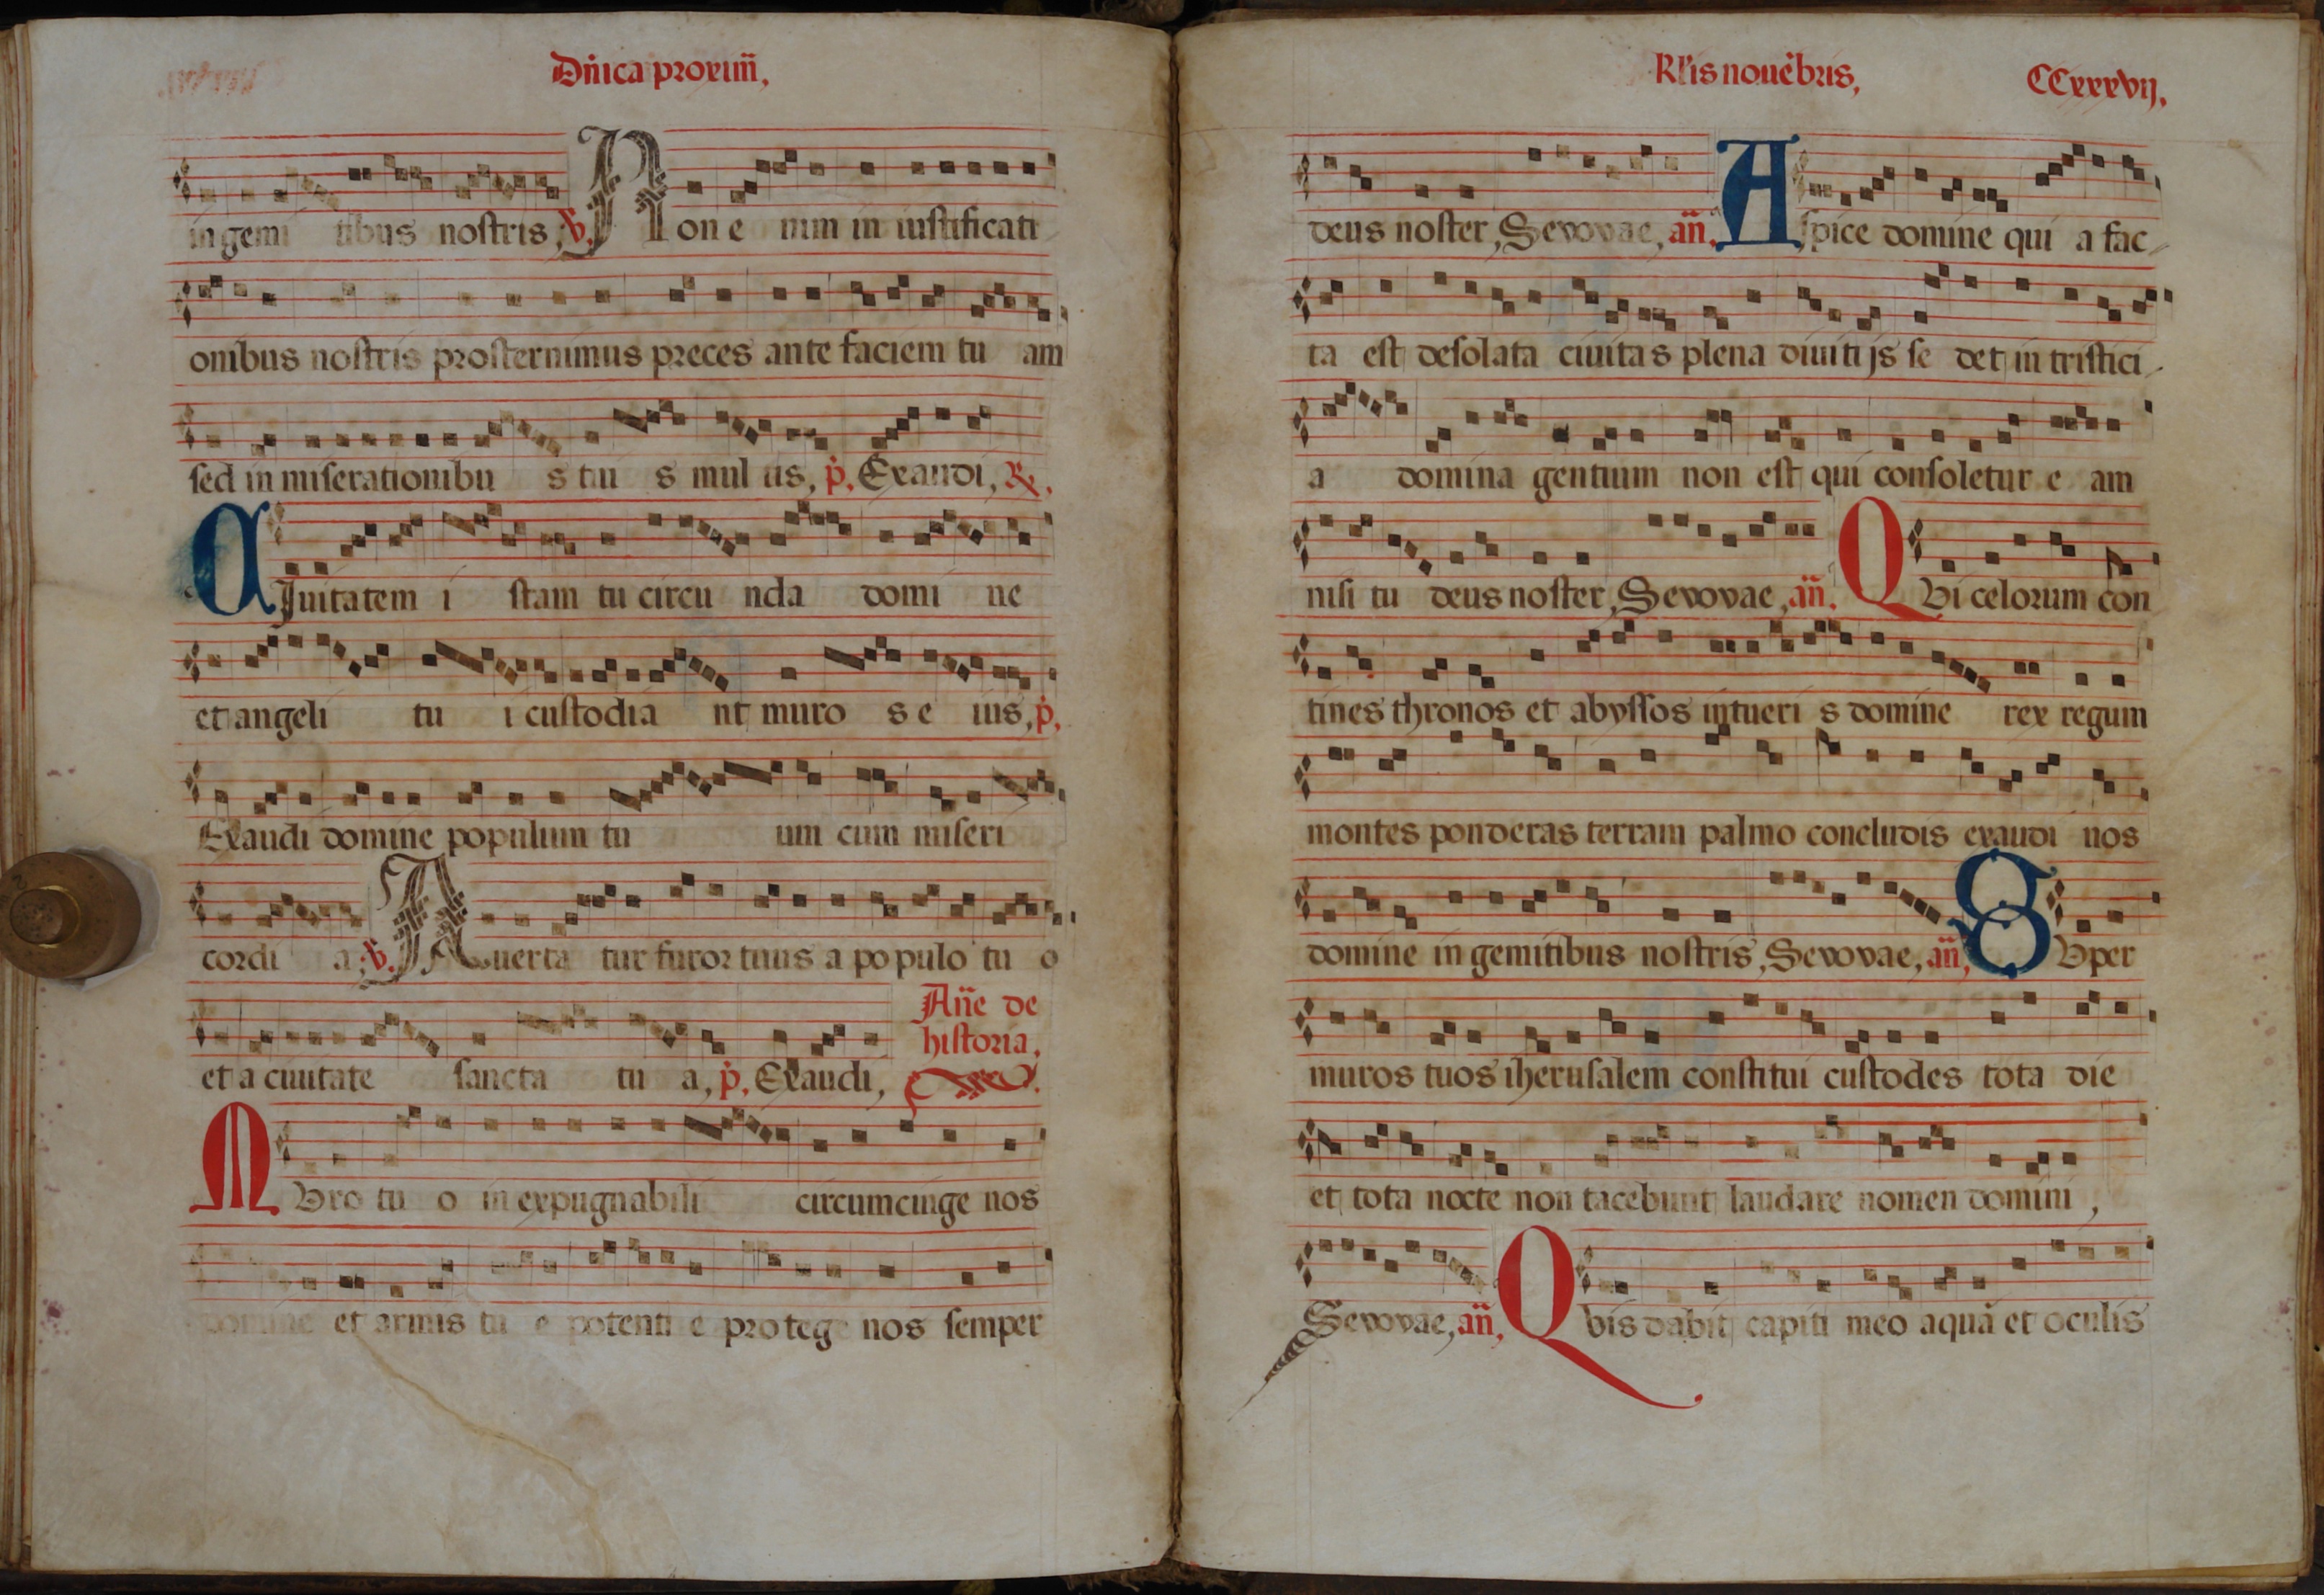 Dñica proxim̄,
in gemi tibus nostris, v. Non e nim in iustificati
onibus nostris prosternimus preces ante faciem tu am
sed in miserationibu s tu s mul tis, p̄. Exaudi, ℟.
CIuitatem i stam tu circu nda domi ne
et angeli tu i custodia nt muro s e ius, p̄.
Exaudi domine populum tu um cum miseri
cordi a, v. Auerta tur furor tuus a populo tu o
et a ciuitate sancta tu a, p̄. Exaudi,
Añe de
historia,
MVro tu o in expugnabili circumcinge nos
domine et armis tu e potenti e protege nos semper
Kl'is nouēbris,
CCxxxvij,
deus noster, Sevovae, an̄. Aspice domine qui a fac
ta est desolata ciuitas plena diuitijs se det in tristici
a domina gentium non est qui consoletur e am
nisi tu deus noster, Sevovae, an̄. QVi celorum con
tines thronos et abyssos intueri s domine rex regum
montes ponderas terram palmo concludis exaudi nos
domine in gemitibus nostris, Sevovae, an̄, SVper
muros tuos iherusalem constitui custodes tota die
et tota nocte non tacebunt laudare nomen domini,
Sevovae, an̄, Qvis dabit capiti meo aquā et oculis